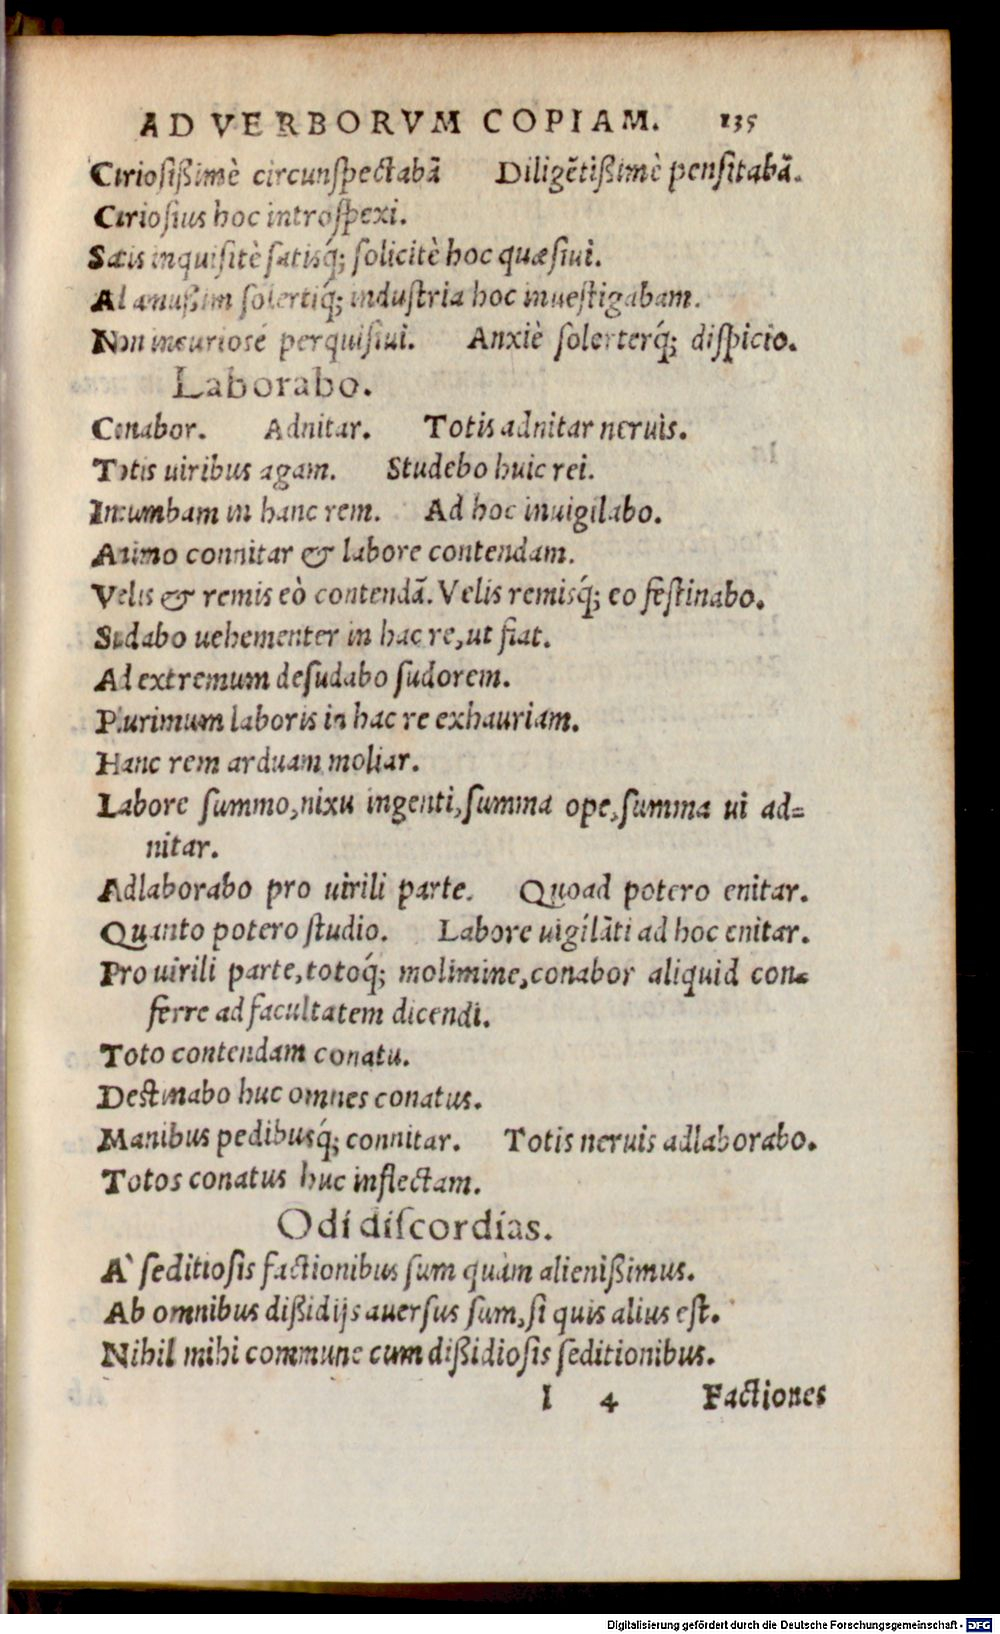 AD VERBORVM COPIAM. 135
Curiosißimè circunspectabã Diligẽtißimè pensitabã.
Curiosius hoc introspexi.
Satis inquisitè satisq́; solicitè hoc quæsiui.
Ad amußim solertiq́; industria hoc inuestigabam.
Non incuriosé perquisiui. Anxiè solerterq́; dispicio.
Laborabo.
Conabor. Adnitar. Totis adnitar neruis.
Totis uiribus agam. Studebo huic rei.
Incumbam in hanc rem. Ad hoc inuigilabo.
Animo connitar & labore contendam.
Velis & remis eò contendã. Velis remisq́; eo festinabo.
Sudabo uehementer in hac re, ut fiat.
Ad extremum desudabo sudorem.
Plurimum laboris in hac re exhauriam.
Hanc rem arduam moliar.
Labore summo, nixu ingenti, summa ope, summa ui ad=
nitar.
Adlaborabo pro uirili parte. Quoad potero enitar.
Quanto potero studio. Labore uigilãti ad hoc enitar.
Pro uirili parte, totoq́; molimine, conabor aliquid con=
ferre ad facultatem dicendi.
Toto contendam conatu.
Destinabo huc omnes conatus.
Manibus pedibusq́; connitar. Totis neruis adlaborabo.
Totos conatus huc inflectam.
Odi discordias.
A` seditiosis factionibus sum quàm alienißimus.
Ab omnibus dißidijs auersus sum, si quis alius est.
Nihil mihi commune cum dißidiosis seditionibus.
I 4 Factiones
Digitalisierung gefördert durch die Deutsche Forschungsgemeinschaft - DFG